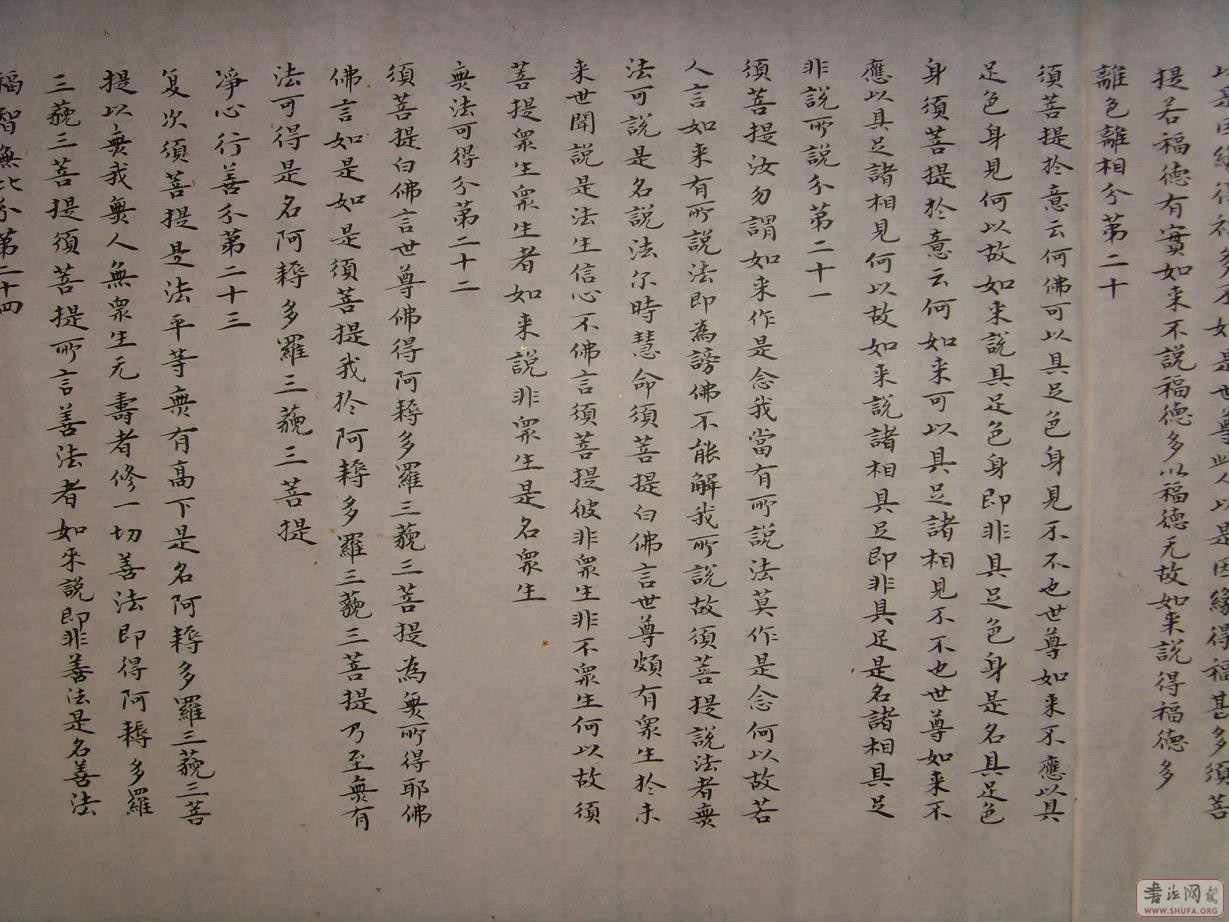 以是因緣得福多不如是世尊此人以是因緣得福甚多須菩
提若福德有實如来不説福德多以福德无故如来説得福德多
離色離相分苐二十
須菩提扵意云何佛可以具足色身見不不也世尊如来不應以具
足色身見何以故如来説具足色身即非具足色身是名具足色
身須菩提扵意云何如来可以具足諸相見不不也世尊如来不
應以具足諸相見何以故如来説諸相具足即非具足是名諸相具足
非説所説分苐二十一
須菩提汝勿謂如来作是念我當有所説法莫作是念何以故若
人言如来有所説法即為謗佛不能解我所説故須菩提説法者無
法可説是名説法尔時慧命須菩提白佛言世尊頗有衆生扵未
来世聞説是法生信心不佛言須菩提彼非衆生非不衆生何以故須
菩提衆生衆生者如来説非衆生是名衆生
無法可得分苐二十二
須菩提白佛言世尊佛得阿耨多羅三藐三菩提為無所得耶佛
佛言如是如是須菩提我扵阿耨多羅三藐三菩提乃至無有
法可得是名阿耨多羅三藐三菩提
淨心行善分苐二十三
复次須菩提是法平等無有高下是名阿耨多羅三藐三菩
提以無我無人無衆生无壽者修一切善法即得阿耨多羅
三藐三菩提須菩提所言善法者如来説即非善法是名善法
福智無比分苐二十四
書法网
WWW.SHUFA.ORG